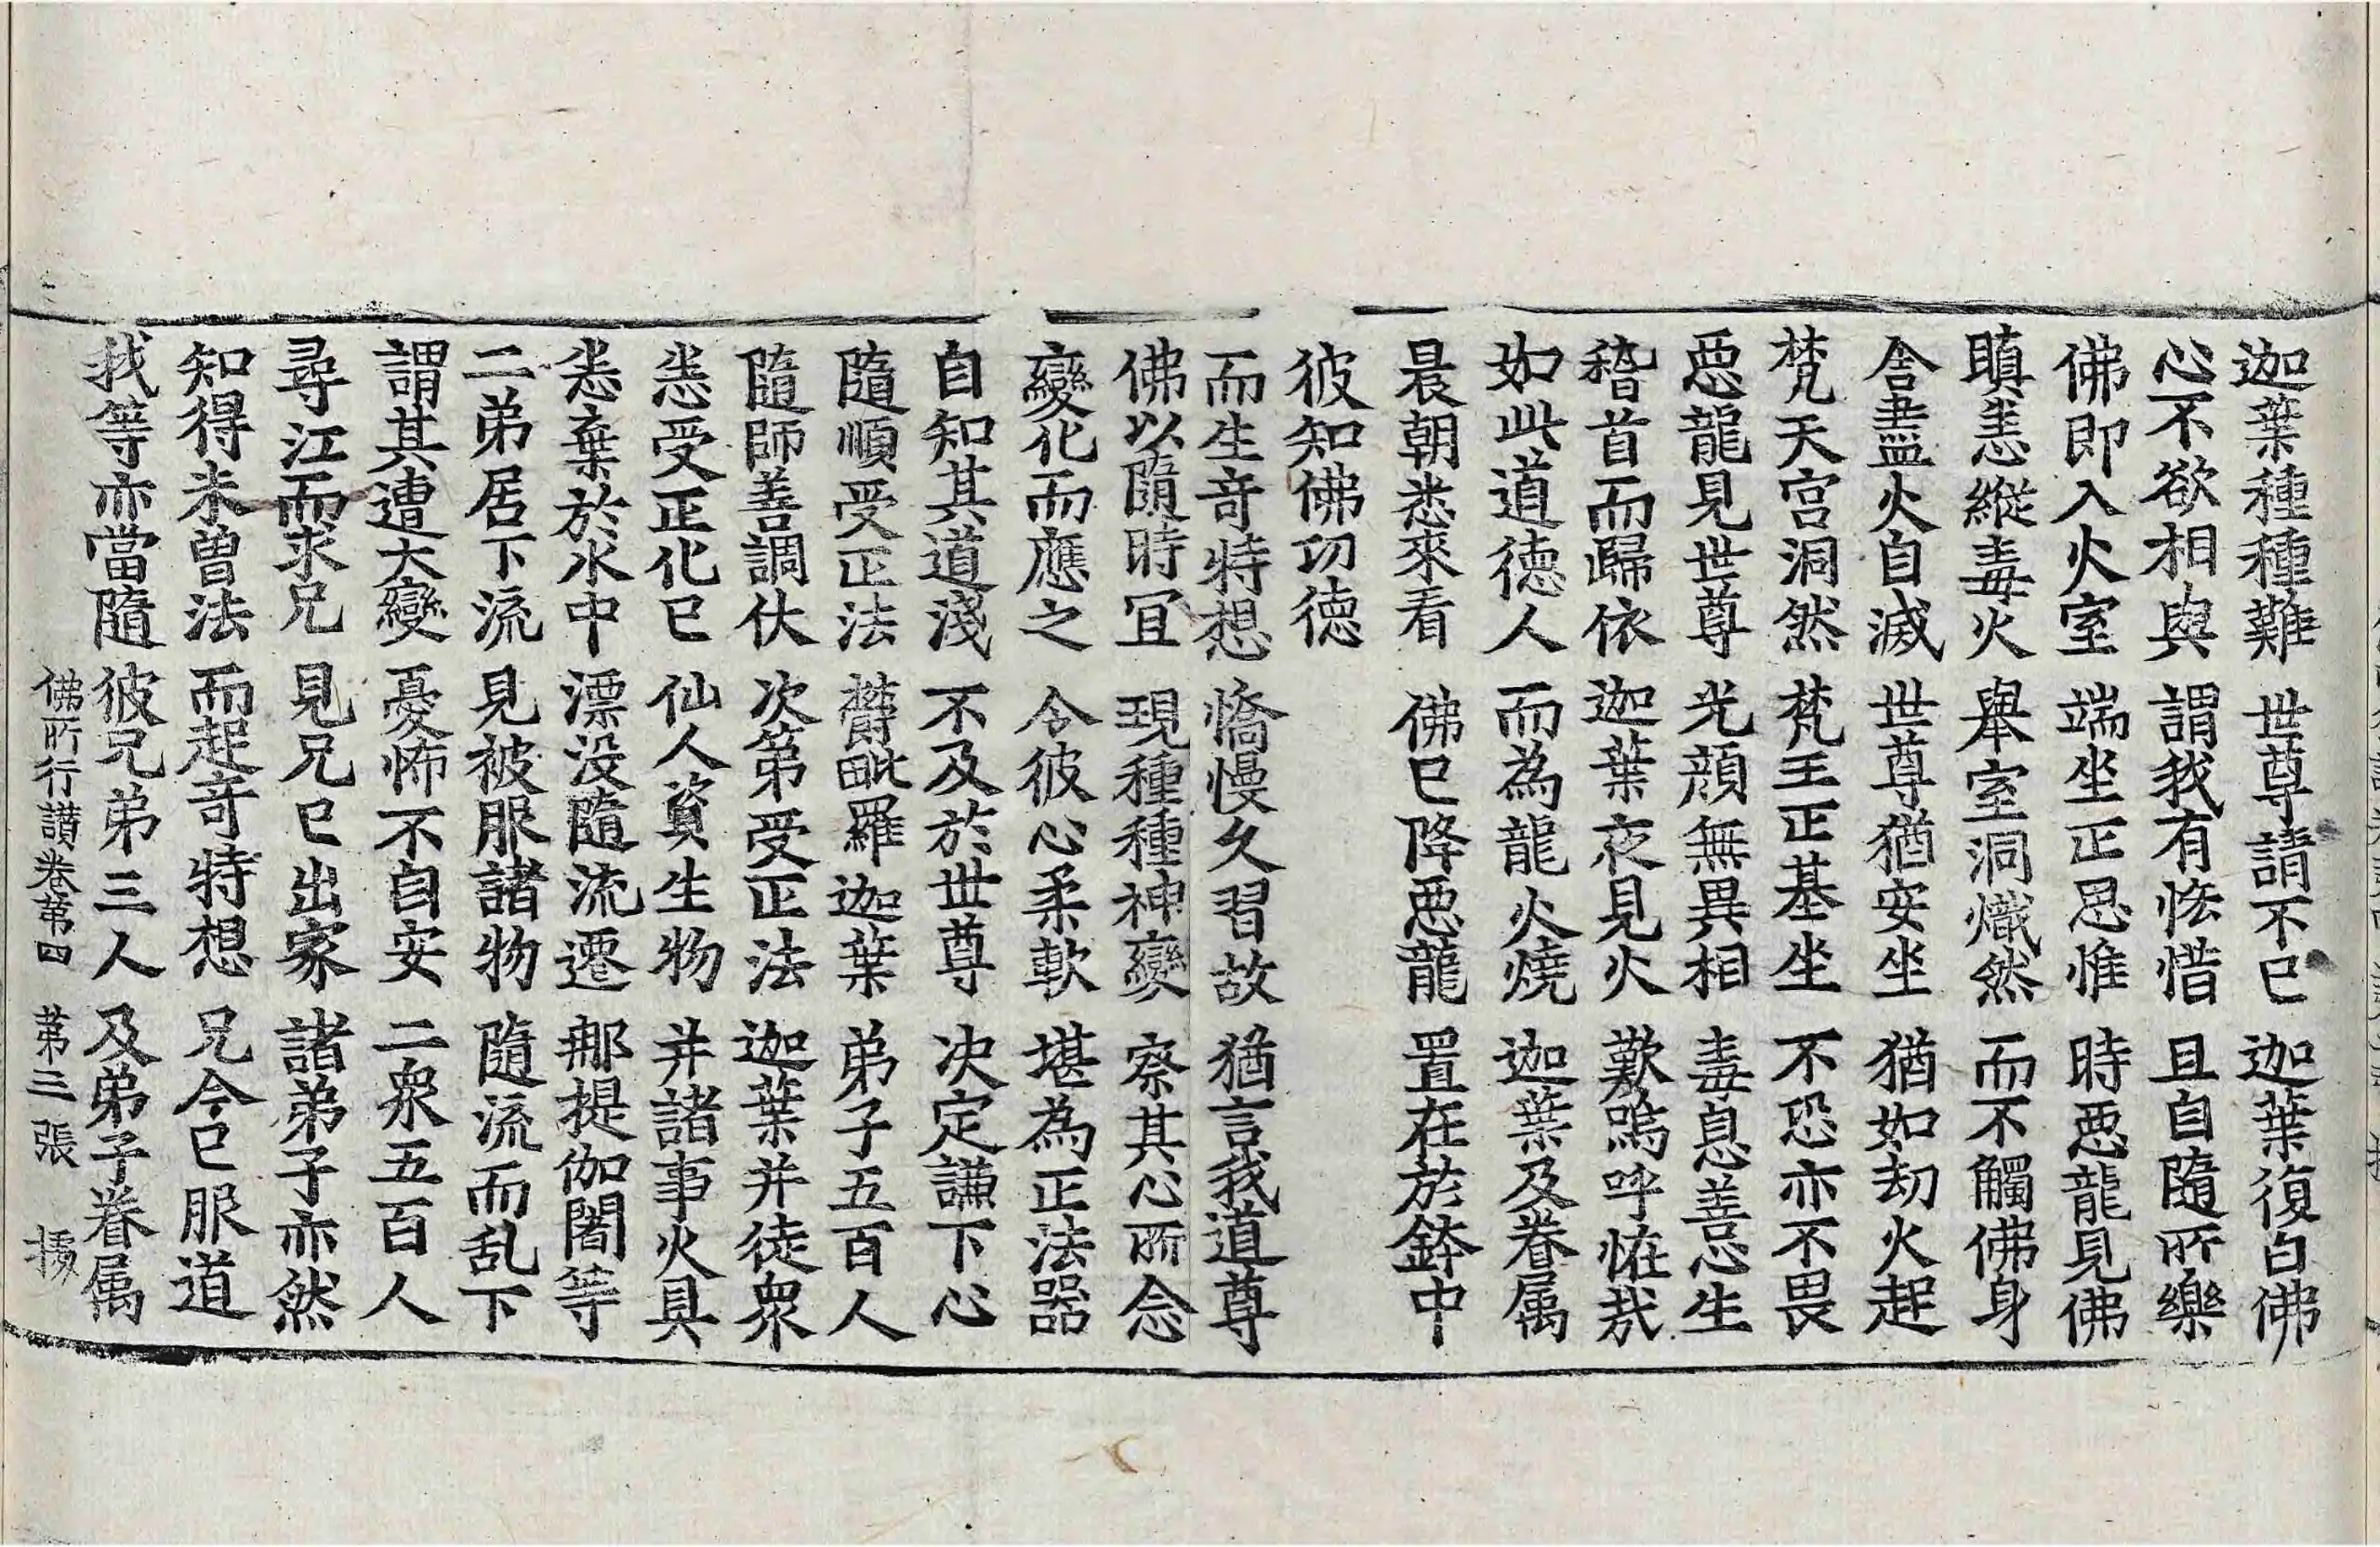 迦葉種種難　世尊請不已　迦葉復白佛
心不欲相與　謂我有悋惜　且自隨所樂
佛即入火室　端坐正思惟　時惡龍見佛
瞋恚縱毒火　舉室洞熾然　而不觸佛身
舍盡火自滅　世尊猶安坐　猶如劫火起
梵天宮洞然　梵王正基坐　不恐亦不畏
惡龍見世尊　光顏無異相　毒息善心生
稽首而歸依　迦葉夜見火　歎嗚呼恠哉
如此道德人　而為龍火燒　迦葉及眷属
晨朝悉來看　佛已降惡龍　置在於鉢中
彼知佛功德
而生奇特想　憍慢久習故　猶言我道尊
佛以隨時冝　現種種神變　察其心所念
變化而應之　令彼心柔軟　堪為正法器
自知其道淺　不及於世尊　决定謙下心
隨順受正法　欝毗羅迦葉　弟子五百人
隨師善調伏　次第受正法　迦葉并徒衆
恚受正化已　仙人資生物　并諸事火具
悉棄於水中　漂没隨流遷　那提伽闍等
二弟居下流　見被服諸物　隨流而乱下
謂其遭大變　憂怖不自安　二衆五百人
尋江而求兄　見兄已出家　諸弟子亦然
知得未曾法　而起奇特想　兄今已服道
我等亦當隨　彼兄弟三人　及弟子眷属
佛所行讃卷第四　第三張